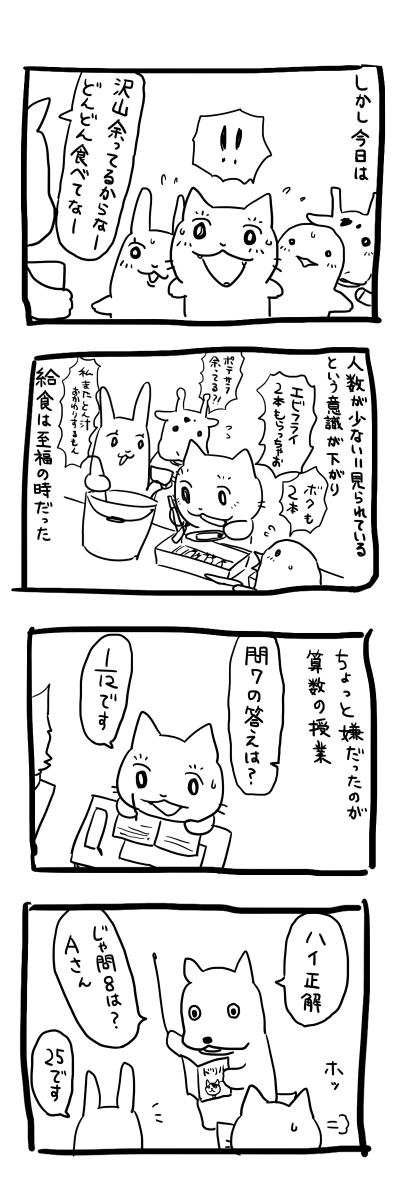 しかし今日は
!!
沢山余ってるからなー
どんどん食べてなー
人数が少ない=見られている
という意識が下がり
エビフライ
2本もらっちゃお
ボクも
2本
ポテサラ
余ってる?!
私またとん汁
おかわりするもん
給食は至福の時だった
ちょっと嫌だったのが
算数の授業
問7の答えは?
1/12です
ハイ正解
ドリル
ホッ
じゃ問8は?
Aさん
25です